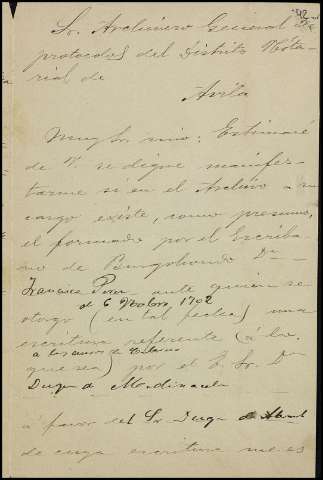 Sr. Archivero General de
protocolos del Distrito Nota-
rial de
Avila
Muy Sr. mio: Estimaré
de V. se digne manifes-
tarme si en el Archivo a su
cargo existe, como presumo,
el formado por el Escriba-
no de Burgohondo Dn
Francisco Perez ante quien se
el 6 Octubre 1702
otorgó (en tal fecha) una
escritura referente (á lo
que sea) por el E. Sr. Dn
Duque de Medinaceli
a favor del Sr Duque de
de cuya escritura me es